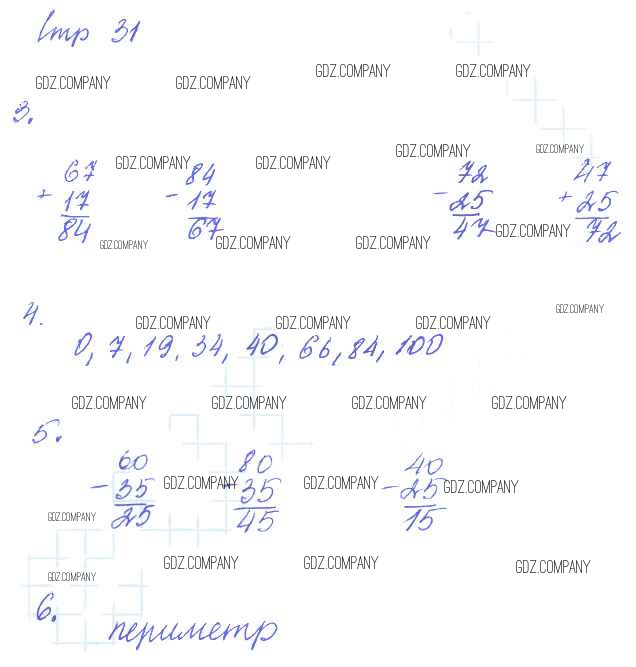 Стр 31
GDZ.COMPANY GDZ.COMPANY GDZ.COMPANY GDZ.COMPANY
3.
GDZ.COMPANY GDZ.COMPANY GDZ.COMPANY GDZ.COMPANY
67 84 72 47
+ 17 - 17 - 25 + 25
84 67 47 72
GDZ.COMPANY GDZ.COMPANY GDZ.COMPANY GDZ.COMPANY
GDZ.COMPANY
4.
GDZ.COMPANY GDZ.COMPANY GDZ.COMPANY
0, 7, 19, 34, 40, 66, 84, 100
GDZ.COMPANY GDZ.COMPANY GDZ.COMPANY GDZ.COMPANY
5.
60 80 40
- 35 - 35 - 25
25 45 15
GDZ.COMPANY GDZ.COMPANY GDZ.COMPANY
GDZ.COMPANY
GDZ.COMPANY GDZ.COMPANY GDZ.COMPANY
GDZ.COMPANY
6.
периметр